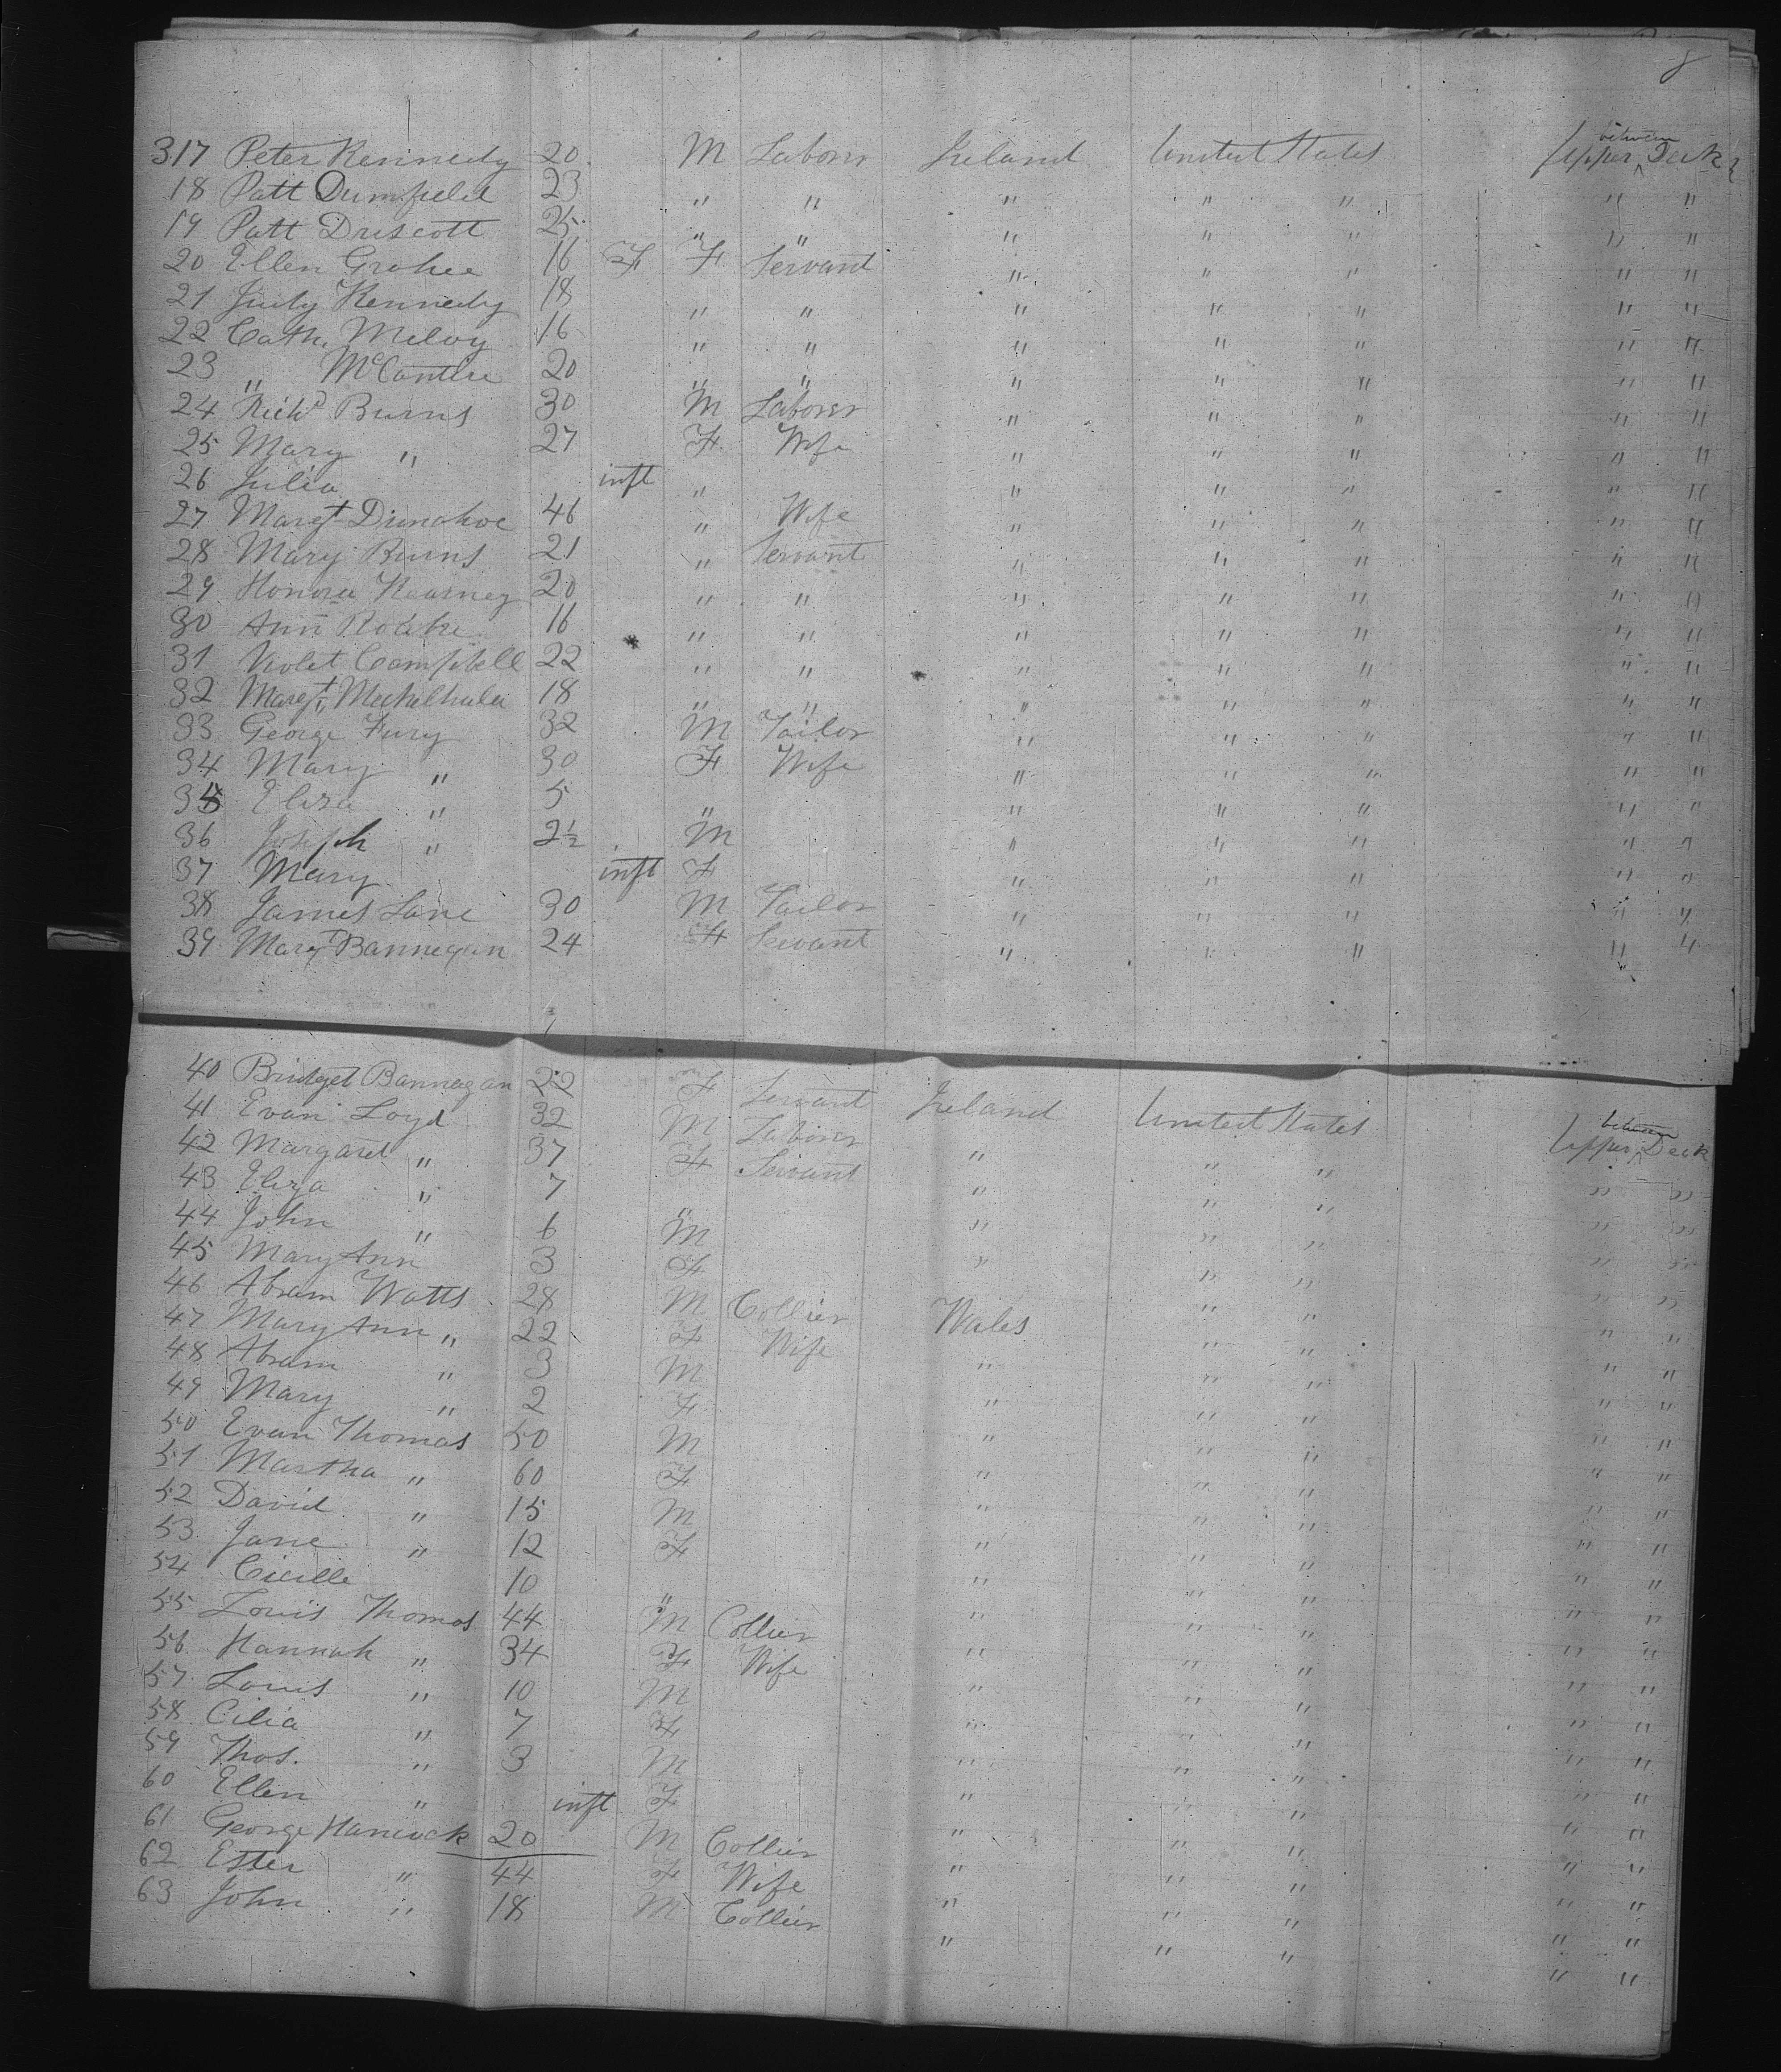 8
between
317 Peter Kennedy 20 M Laborer Ireland United States Upper Deck
18 Patt Dumfield 23 " " " " " " "
19 Patt Driscott 25 " " " " " " "
20 Ellen Grohee 16 F F Servant " " " " "
21 Judy Kennedy 18 " " " " " " "
22 Cath. Meloy 16 " " " " " " "
23 " McCantere 20 " " " " " " "
24 Richd Burns 30 M Laborer " " " " "
25 Mary " 27 F Wife " " " " "
26 Julia inft " " " " " "
27 Margt Dunahoe 46 " Wife " " " " "
28 Mary Burns 21 " Servant " " " " "
29 Honora Kearney 20 " " " " " " "
30 Ann Roake 16 " " " " " " "
31 Violet Campbell 22 " " " " " " "
32 Margt 18 " " " " " " "
33 George Fury 32 M Tailor " " " " "
34 Mary " 30 F Wife " " " " "
35 Eliza " 5 " " " " " "
36 Joseph " 2½ M " " " " "
37 Mary inft F " " " " "
38 James Lane 30 M Tailor " " " " "
39 Margt Bannegan 24 F Servant " " " " "
40 Bridget Bannegan 22 F Servant Ireland United States Upper between Deck
41 Evan Loyd 32 M Laborer " " " " "
42 Margaret " 37 F Servant " " " " "
43 Eliza " 7 " " " " " "
44 John " 6 M " " " " "
45 Mary Ann 3 F " " " "
46 Abram Watts 28 M Collier Wales " " " "
47 Mary Ann " 22 F Wife " " " " "
48 Abram " 3 M " " " " "
49 Mary " 2 F " " " " "
50 Evan Thomas 50 M " " " " "
51 Martha " 60 F " " " " "
52 David " 15 M " " " " "
53 Jane " 12 F " " " " "
54 Cicille 10 " " " " " "
55 Louis Thomas 44 M Collier " " " " "
56 Hannah " 34 F Wife " " " " "
57 Louis " 10 M " " " " "
58 Cilia " 7 F " " " " "
59 Thos. " 3 M " " " " "
60 Ellen " inft F " " " " "
61 George Hancock 20 M Collier " " " " "
62 Ester " 44 F Wife " " " " "
63 John " 18 M Collier " " " " "